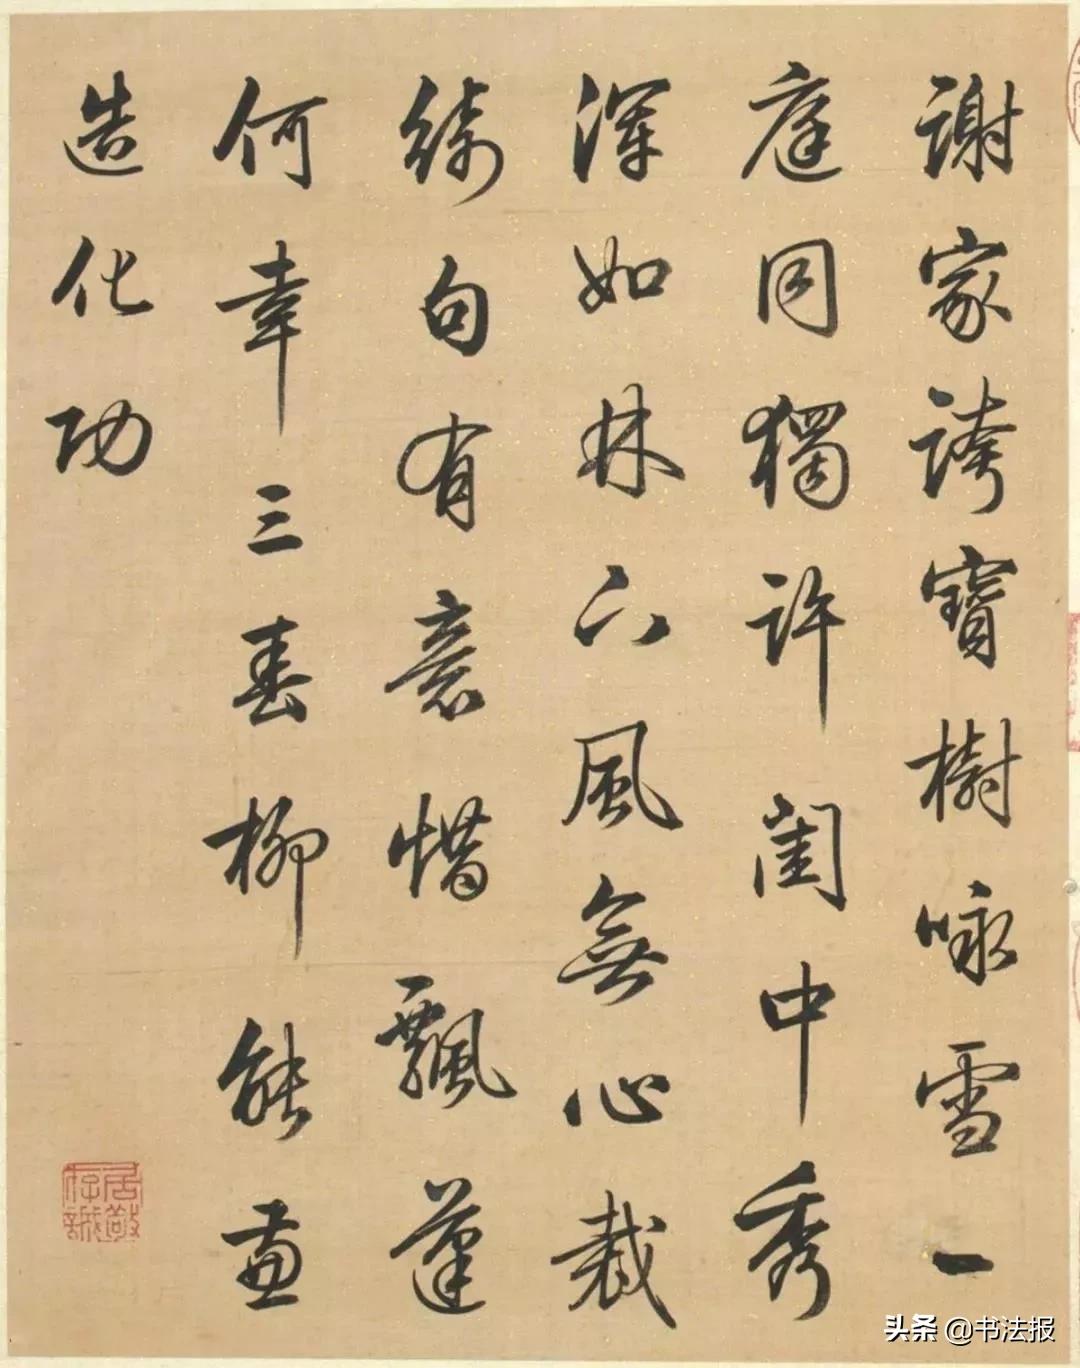 謝家誇寶樹咏雪一
庭同獨許閨中秀
渾如林下風無心裁
綺句有意惜飄蓬
何幸三春柳能
造化功
居敬存誠
头条 @书法报